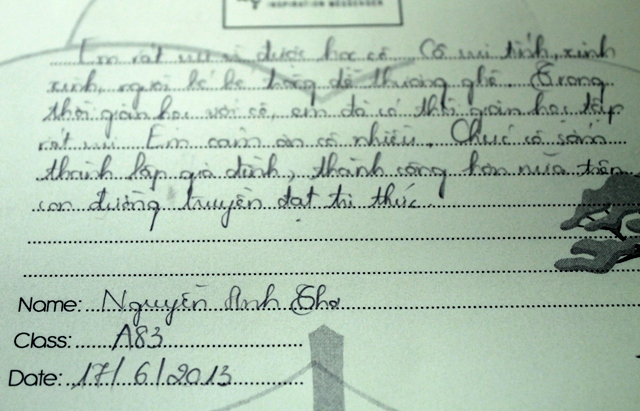 INSPIRATION MESSENGER
Em rất vui vì được học cô. Cô vui tính, xinh
xinh, người bé bé trông dễ thương ghê. Trong
thời gian học với cô, em đã có thời gian học tập
rất vui. Em cảm ơn cô nhiều. Chúc cô sớm
thành lập gia đình, thành công hơn nữa trên
con đường truyền đạt tri thức.
Name: Nguyễn Anh Thơ
Class: A83
Date: 17/6/2013